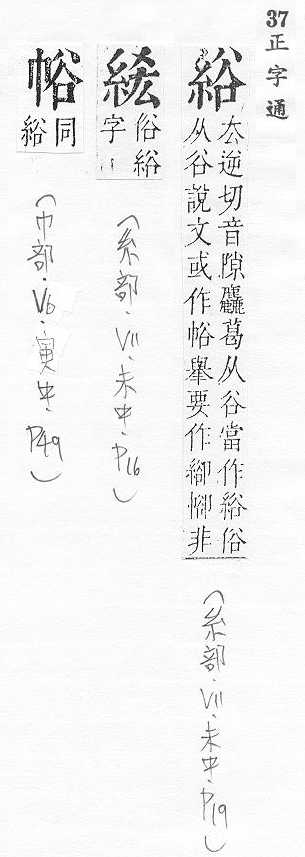 37
正字通
綌
厺逆切音隙麤葛从谷當作綌俗
从谷說文或作舉要作非
(糸部·VII·未中·P19)
俗綌
字
(糸部·VII·未中·P16)
同
綌
(巾部·V6·寅中·P49)